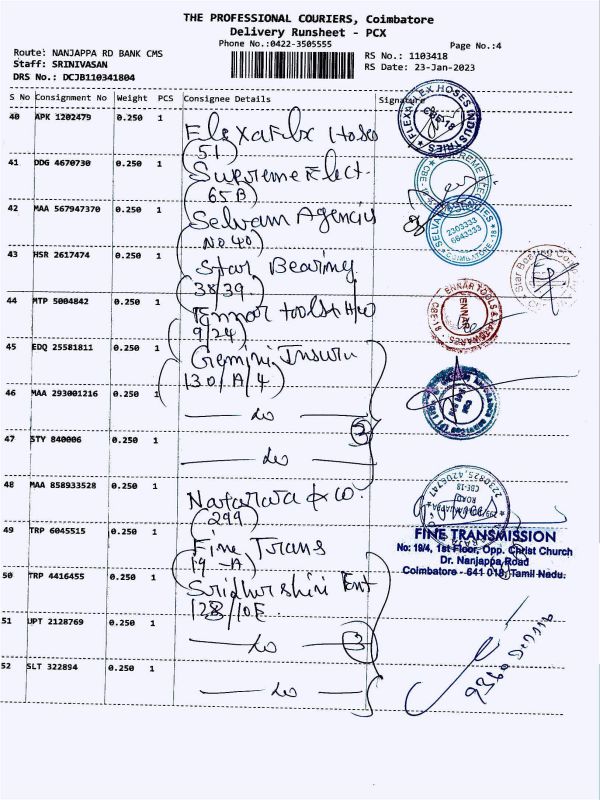 THE PROFESSIONAL COURIERS, Coimbatore
Delivery Runsheet - PCX
Phone No.:0422-3505555
Page No.:4
Route: NANJAPPA RD BANK CMS
RS No.: 1103418
Staff: SRINIVASAN
RS Date: 23-Jan-2023
DRS No.: DCJB110341804
S No Consignment No Weight PCS Consignee Details Signature
40 APK 1202479 0.250 1 Flexaflex Hoses
(51)
FLEXAFLEX HOSES INDUSTRIES
CBE-18
41 DDG 4670730 0.250 1 Supreme Elect.
(65B)
42 MAA 567947370 0.250 1 Selvam Agencies
(No.40)
SELVAM AGENCIES
2303333
6643333
COIMBATORE-18
43 HSR 2617474 0.250 1 Star Bearing
(38/39)
44 MTP 5004842 0.250 1 Ennar tools & H/w
9/24)
ENNAR TOOLS & HARDWARES
ENNAR
CBE-18
45 EDQ 25581811 0.250 1 Gemini Insuru
130/A/4)
46 MAA 293001216 0.250 1 do
47 STY 840006 0.250 1 do
48 MAA 858933528 0.250 1 Nataraja & co.
(299)
2230925, 4206747
CBE-18
49 TRP 6045515 0.250 1 Fine Trans
19-A)
FINE TRANSMISSION
No: 19/4, 1st Floor, Opp. Christ Church
Dr. Nanjappa Road
Coimbatore - 641 018, Tamil Nadu.
50 TRP 4416455 0.250 1 Sridhurshini Ent
128/10E
51 UPT 2128769 0.250 1 do 3
52 SLT 322894 0.250 1 do